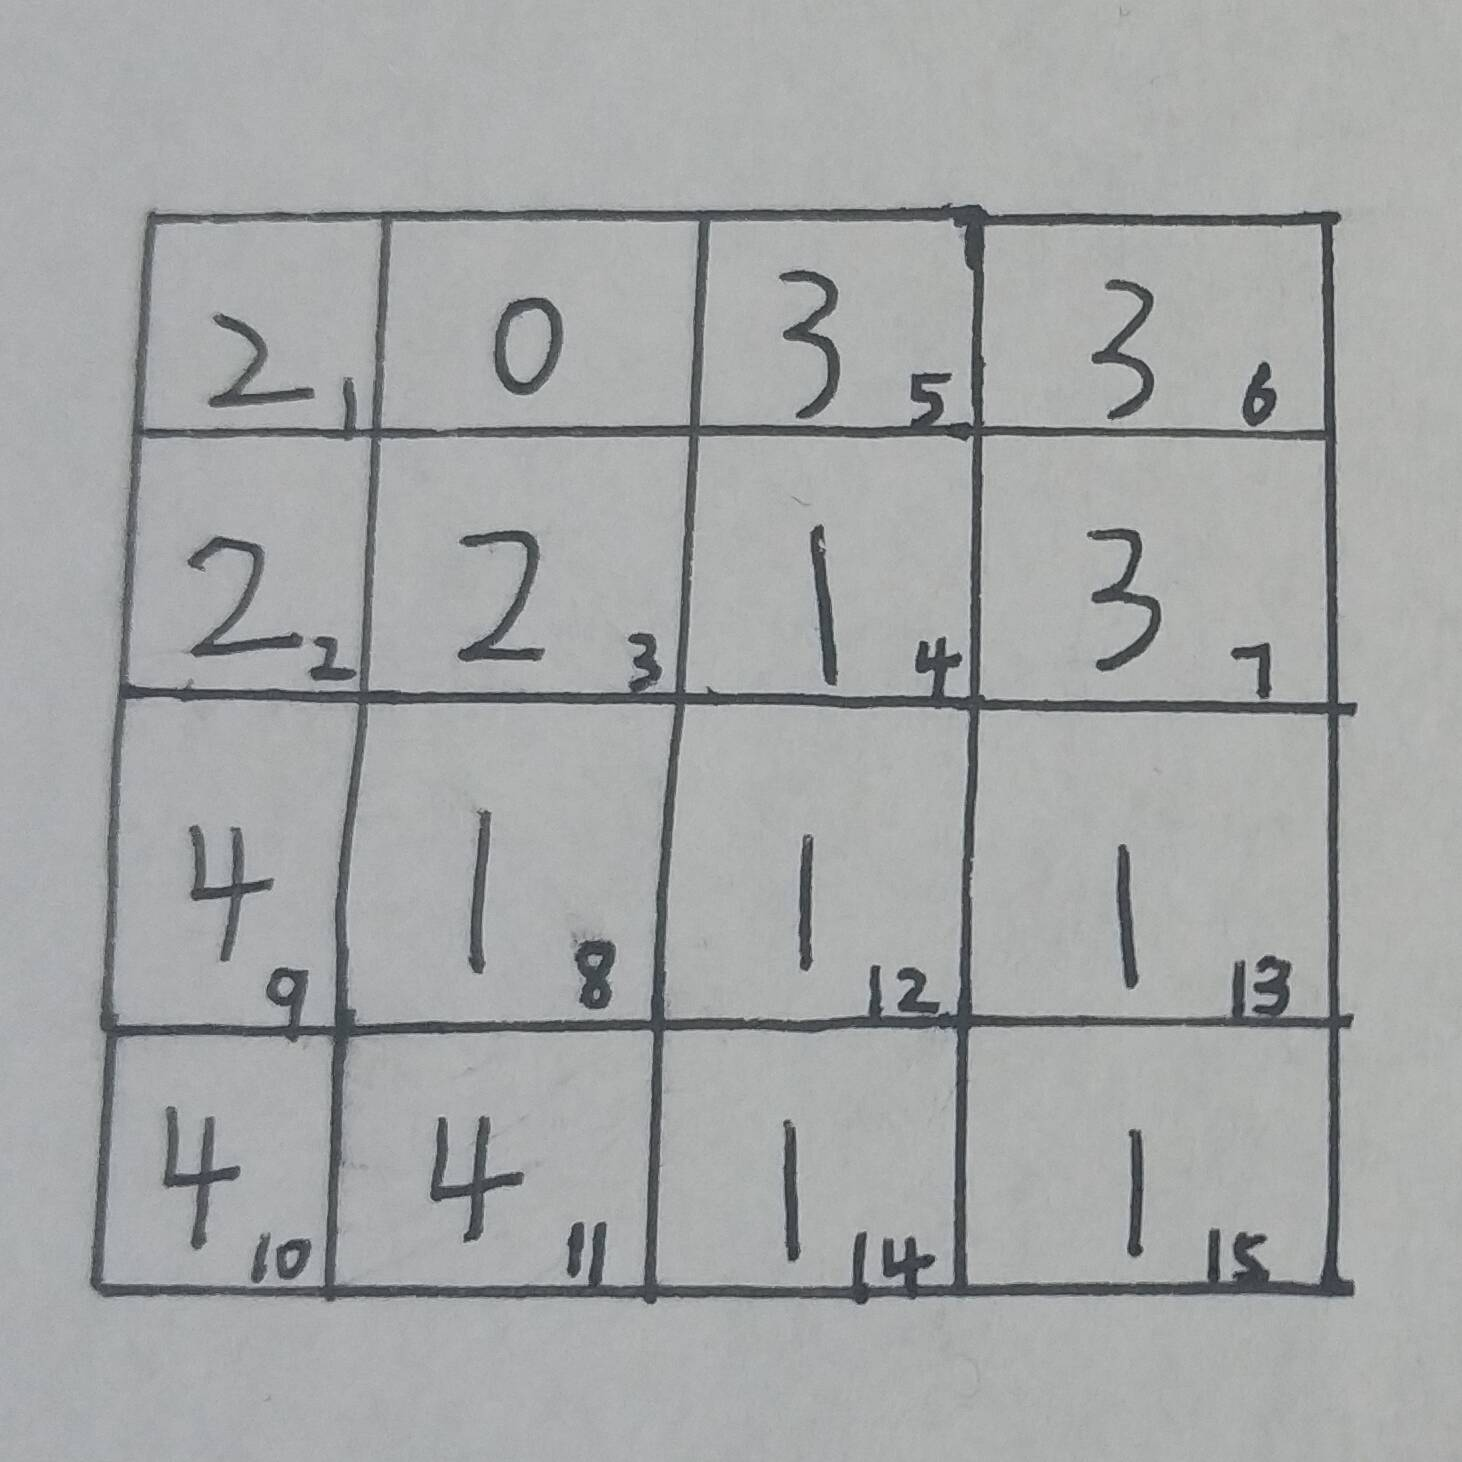 2 1 0 3 5 3 6
2 2 2 3 1 4 3 7
4 9 1 8 1 12 1 13
4 10 4 11 1 14 1 15